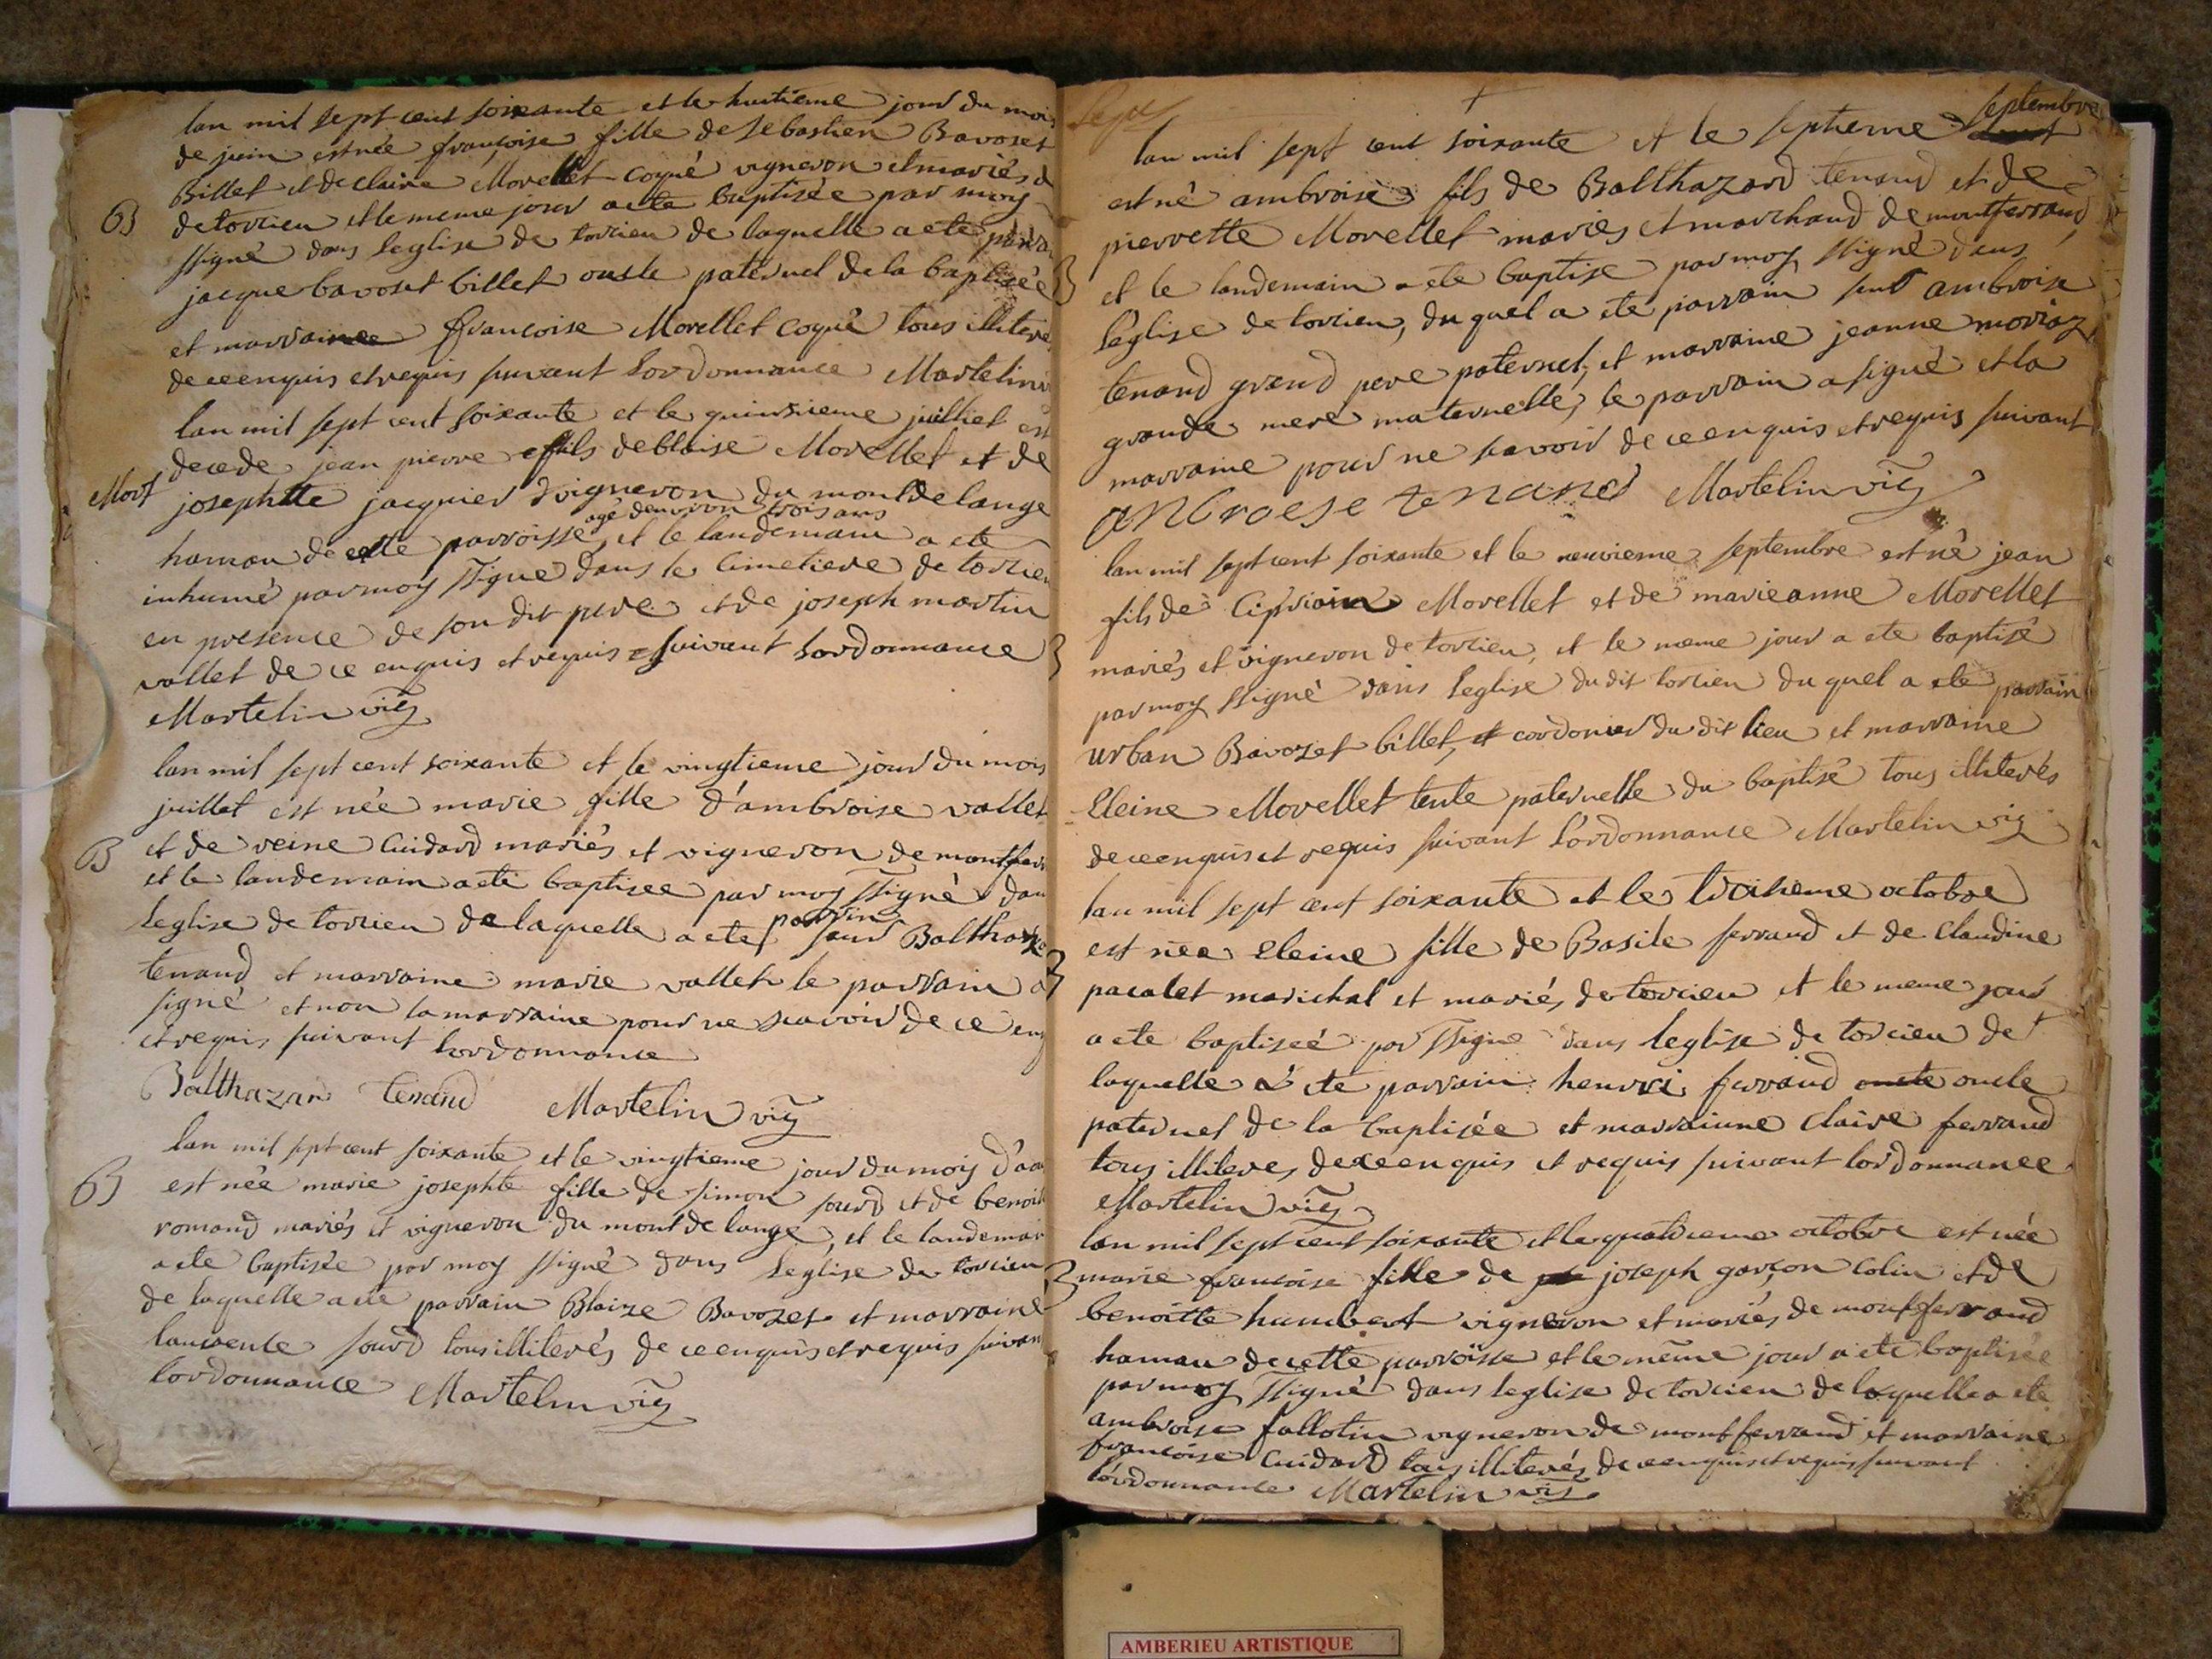 lan mil sept cent soixante et le huitieme jour du mois
de juin est née françoise fille de sebastien Bavozet
Billet et de claire Morellet coqué vigneron et mariés
B
de torcien et le meme jour a ete baptisée par moy
ssigné dans leglise de torcien de laquelle a ete
jacque bavoset billet oncle paternel de la baptisée
et marraine françoise Morellet coqué tous illiterés
de ce enquis et requis suivant lordonnance Martelin
lan mil sept cent soixante et le quinsieme juilliet est
decede jean pierre fils de blaise Morellet et de
Mort
josephtte jacquier vigneron du mont de lange
agé denviron trois ans
hamau de cette parroisse, et le landemain a ete
inhumé par moy ssigné dans le cimetiere de torcien
en presence de son dit pere et de joseph martin
vallet de ce enquis et requis suivant lordonnance
Martelin vic
lan mil sept cent soixante et le vingtieme jour du mois
juillet est née marie fille d'ambroise vallet
B
et de reine Cuidard mariés et vigneron de montferr
et le landemain a ete baptisee par moy ssigné dan
parrin
leglise de torcien de laquelle a ete sieur Balthazar
tenand et marraine marie vallet le parrain a
signé et non la marraine pour ne scavoir de ce enq
et requis suivant lordonnance
Balthazar tenand Martelin vic
lan mil sept cent soixante et le vingtieme jour du mois d'aou
B
est née marie josephte fille de simon sourd et de benoit
romand mariés et vigneron du mont de lange, et le landemain
a ete baptisée par moy ssigné dans leglise de torcien
de laquelle a ete parrain Blaize Bavozet et marraine
laurence sourd tous illiterés de ce enquis et requis suivan
lordonnance Martelin vic
septembre
lan mil sept cent soixante et le septieme
est né ambroise fils de Balthazard tenand et de
pierrette Morellet mariés et marchand de montferrand
B
et le landemain a ete baptise par moy ssigné dans
l'église de torcien, du quel a ete parrain sieur ambroise
tenand grand pere paternel, et marraine jeanne moriaz
grande mere maternelle, le parrain a signé et la
marraine pour ne scavoir de ce enquis et requis suivant
anbroese tenand Martelin vic
lan mil sept cent soixante et le neuvieme septembre est né jean
fils de Ciprian Morellet et de marieanne Morellet
B
mariés et vigneron de torcien, et le meme jour a ete baptisé
par moy ssigné dans leglise du dit torcien du quel a ete parrain
urban Bavozet billet, cordonier du dit lieu et marraine
Eleine Morellet tente paternelle du baptisé tous illiterés
de ce enquis et requis suivant l'ordonnance Martelin vic
lan mil sept cent soixante et le troisieme octobre
est née eleine fille de Basile ferrand et de Claudine
B
pacalet marichal et mariés de torcien et le meme jour
a ete baptiseé par ssigné dans leglise de torcien de
laquelle a ete parrain henri ferrand oncle oncle
paternel de la baptisée et marrainne Claire ferrand
tous illiterés de ce enquis et requis suivant lordonnance
Martelin vic
lan mil sept cent soixante et le quatrieme octobre est née
B
marie françoise fille de joseph garçon Colin et de
benoitte humbert vigneron et mariés de montferrand
hamau de cette parroisse et le même jour a ete baptisée
par moy ssigné dans leglise de torcien de laquelle a ete
ambroise fallotin vigneron de montferrand et marraine
françoise Cuidard tous illiterés de ce enquis et requis suivant
lordonnance Martelin vic
AMBERIEU ARTISTIQUE